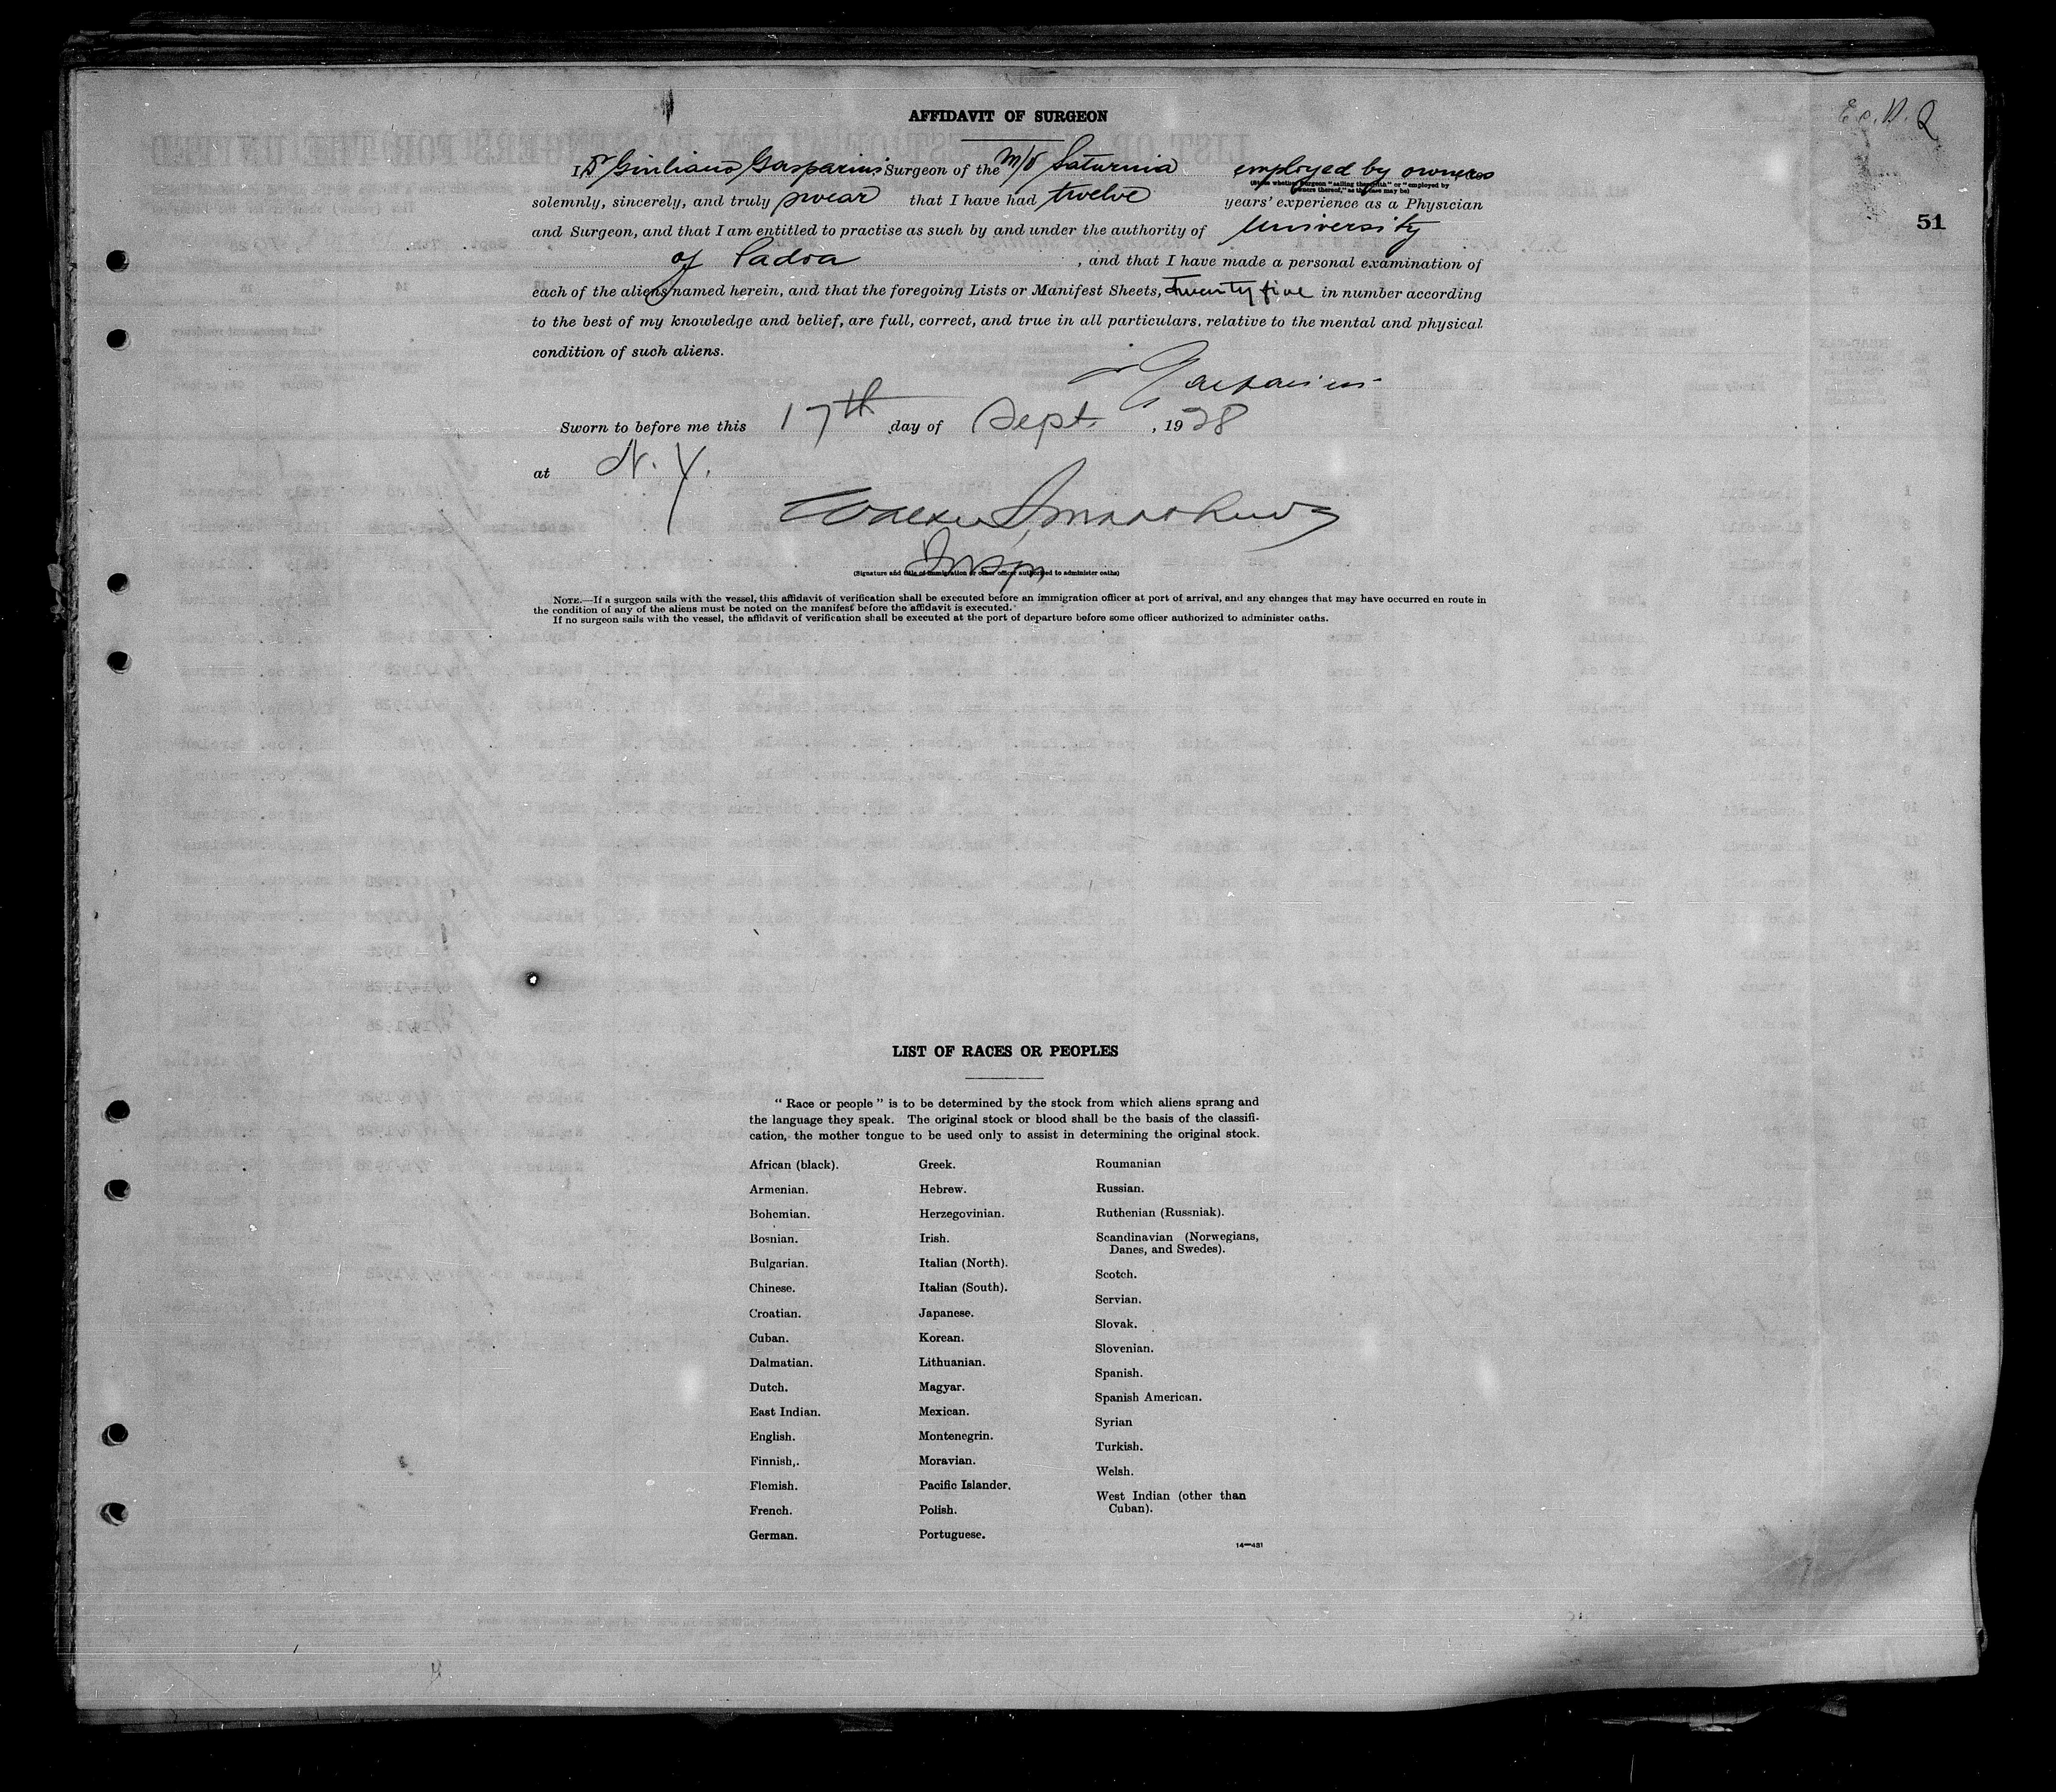 AFFIDAVIT OF SURGEON
51
I, Dr Giuliano Gasparini Surgeon of the M/V Saturnia employed by owners
(State whether surgeon "sailing therewith" or "employed by
owners thereof," as the case may be)
solemnly, sincerely, and truly swear that I have had twelve years' experience as a Physician
and Surgeon, and that I am entitled to practise as such by and under the authority of University
of Padva , and that I have made a personal examination of
each of the aliens named herein, and that the foregoing Lists or Manifest Sheets, twenty five in number according
to the best of my knowledge and belief, are full, correct, and true in all particulars, relative to the mental and physical
condition of such aliens.
Gasparini
Sworn to before me this 17th day of Sept. , 1928
at N. Y.
Insp
(Signature and title of immigration or other officer authorized to administer oaths)
NOTE.—If a surgeon sails with the vessel, this affidavit of verification shall be executed before an immigration officer at port of arrival, and any changes that may have occurred en route in
the condition of any of the aliens must be noted on the manifest before the affidavit is executed.
If no surgeon sails with the vessel, the affidavit of verification shall be executed at the port of departure before some officer authorized to administer oaths.
LIST OF RACES OR PEOPLES
" Race or people " is to be determined by the stock from which aliens sprang and
the language they speak. The original stock or blood shall be the basis of the classifi-
cation, the mother tongue to be used only to assist in determining the original stock.
African (black).
Armenian.
Bohemian.
Bosnian.
Bulgarian.
Chinese.
Croatian.
Cuban.
Dalmatian.
Dutch.
East Indian.
English.
Finnish,.
Flemish.
French.
German.
Greek.
Hebrew.
Herzegovinian.
Irish.
Italian (North).
Italian (South).
Japanese.
Korean.
Lithuanian.
Magyar.
Mexican.
Montenegrin.
Moravian.
Pacific Islander.
Polish.
Portuguese.
Roumanian
Russian.
Ruthenian (Russniak).
Scandinavian (Norwegians,
Danes, and Swedes).
Scotch.
Servian.
Slovak.
Slovenian.
Spanish.
Spanish American.
Syrian
Turkish.
Welsh.
West Indian (other than
Cuban).
14—481